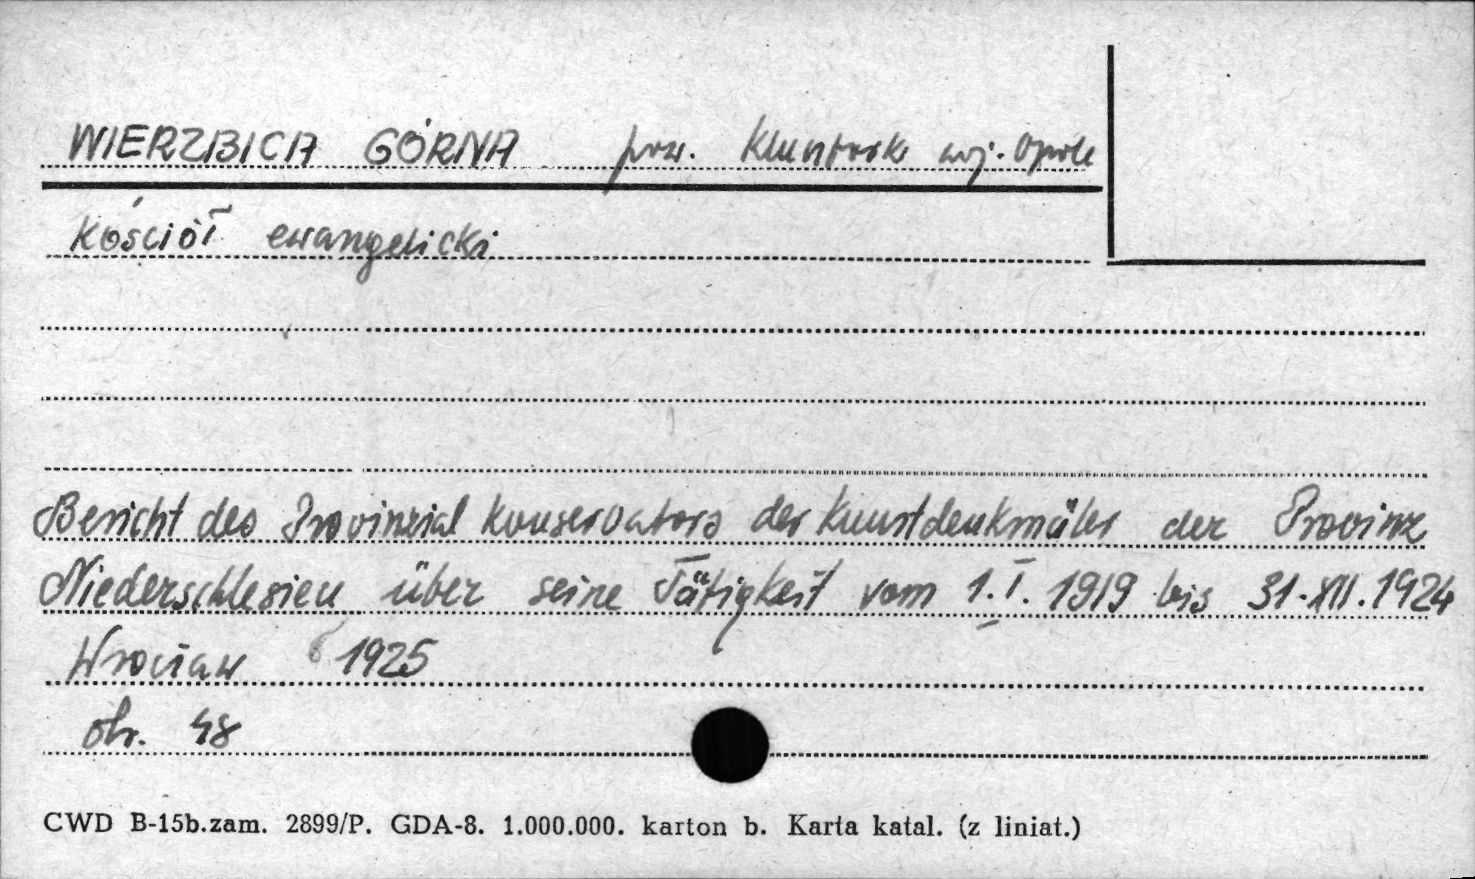 WIERZBICA GÓRNA pow. Kluczbork woj. Opole
Kościół ewangelicki
Bericht des Provinzial Konservators der Kunstdenkmäler der Provinz
Niederschlesien über seine Tätigkeit vom 1.I.1919 bis 31.XII.1924
Wrocław 1925
str. 48
CWD B-15b.zam. 2899/P. GDA-8. 1.000.000. karton b. Karta katal. (z liniat.)